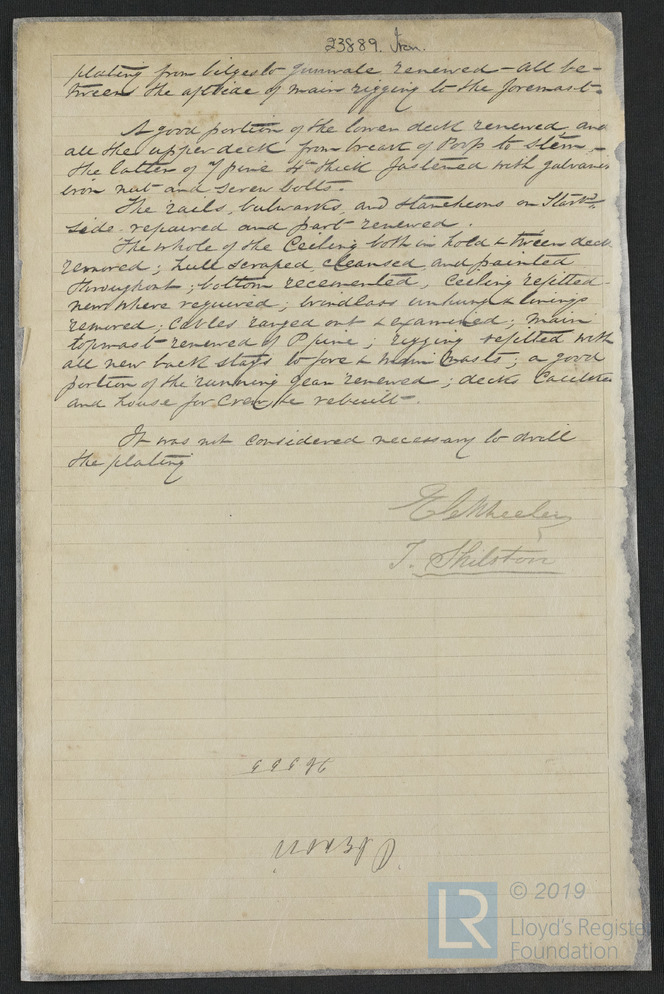 23889. Iron.
plating from bilges to gunwale renewed - all be-
tween the aft side of main rigging to the foremast.
A good portion of the lower deck renewed, and
all the upper deck from break of Poop to stem, -
the latter of Y pine 4in thick fastened with galvanized
iron nut and screw bolts.
The rails, bulwarks, and stancheons on Starbd
side repaired and part renewed.
The whole of the Ceiling both in hold & tween deck
removed; hull scraped, cleansed and painted
throughout; bottom recemented, Ceiling refitted
new where required; windlass unhung & linings
removed; cables ranged out & examined; main
topmast renewed of P pine; rigging refitted with
all new back stays to fore & main masts; a good
portion of the running gear renewed; decks Caulked
and house for Crew &c rebuilt -.
It was not considered necessary to drill
the plating
Wheeler
T. Shilston
© 2019
LR
Lloyd's Register
Foundation